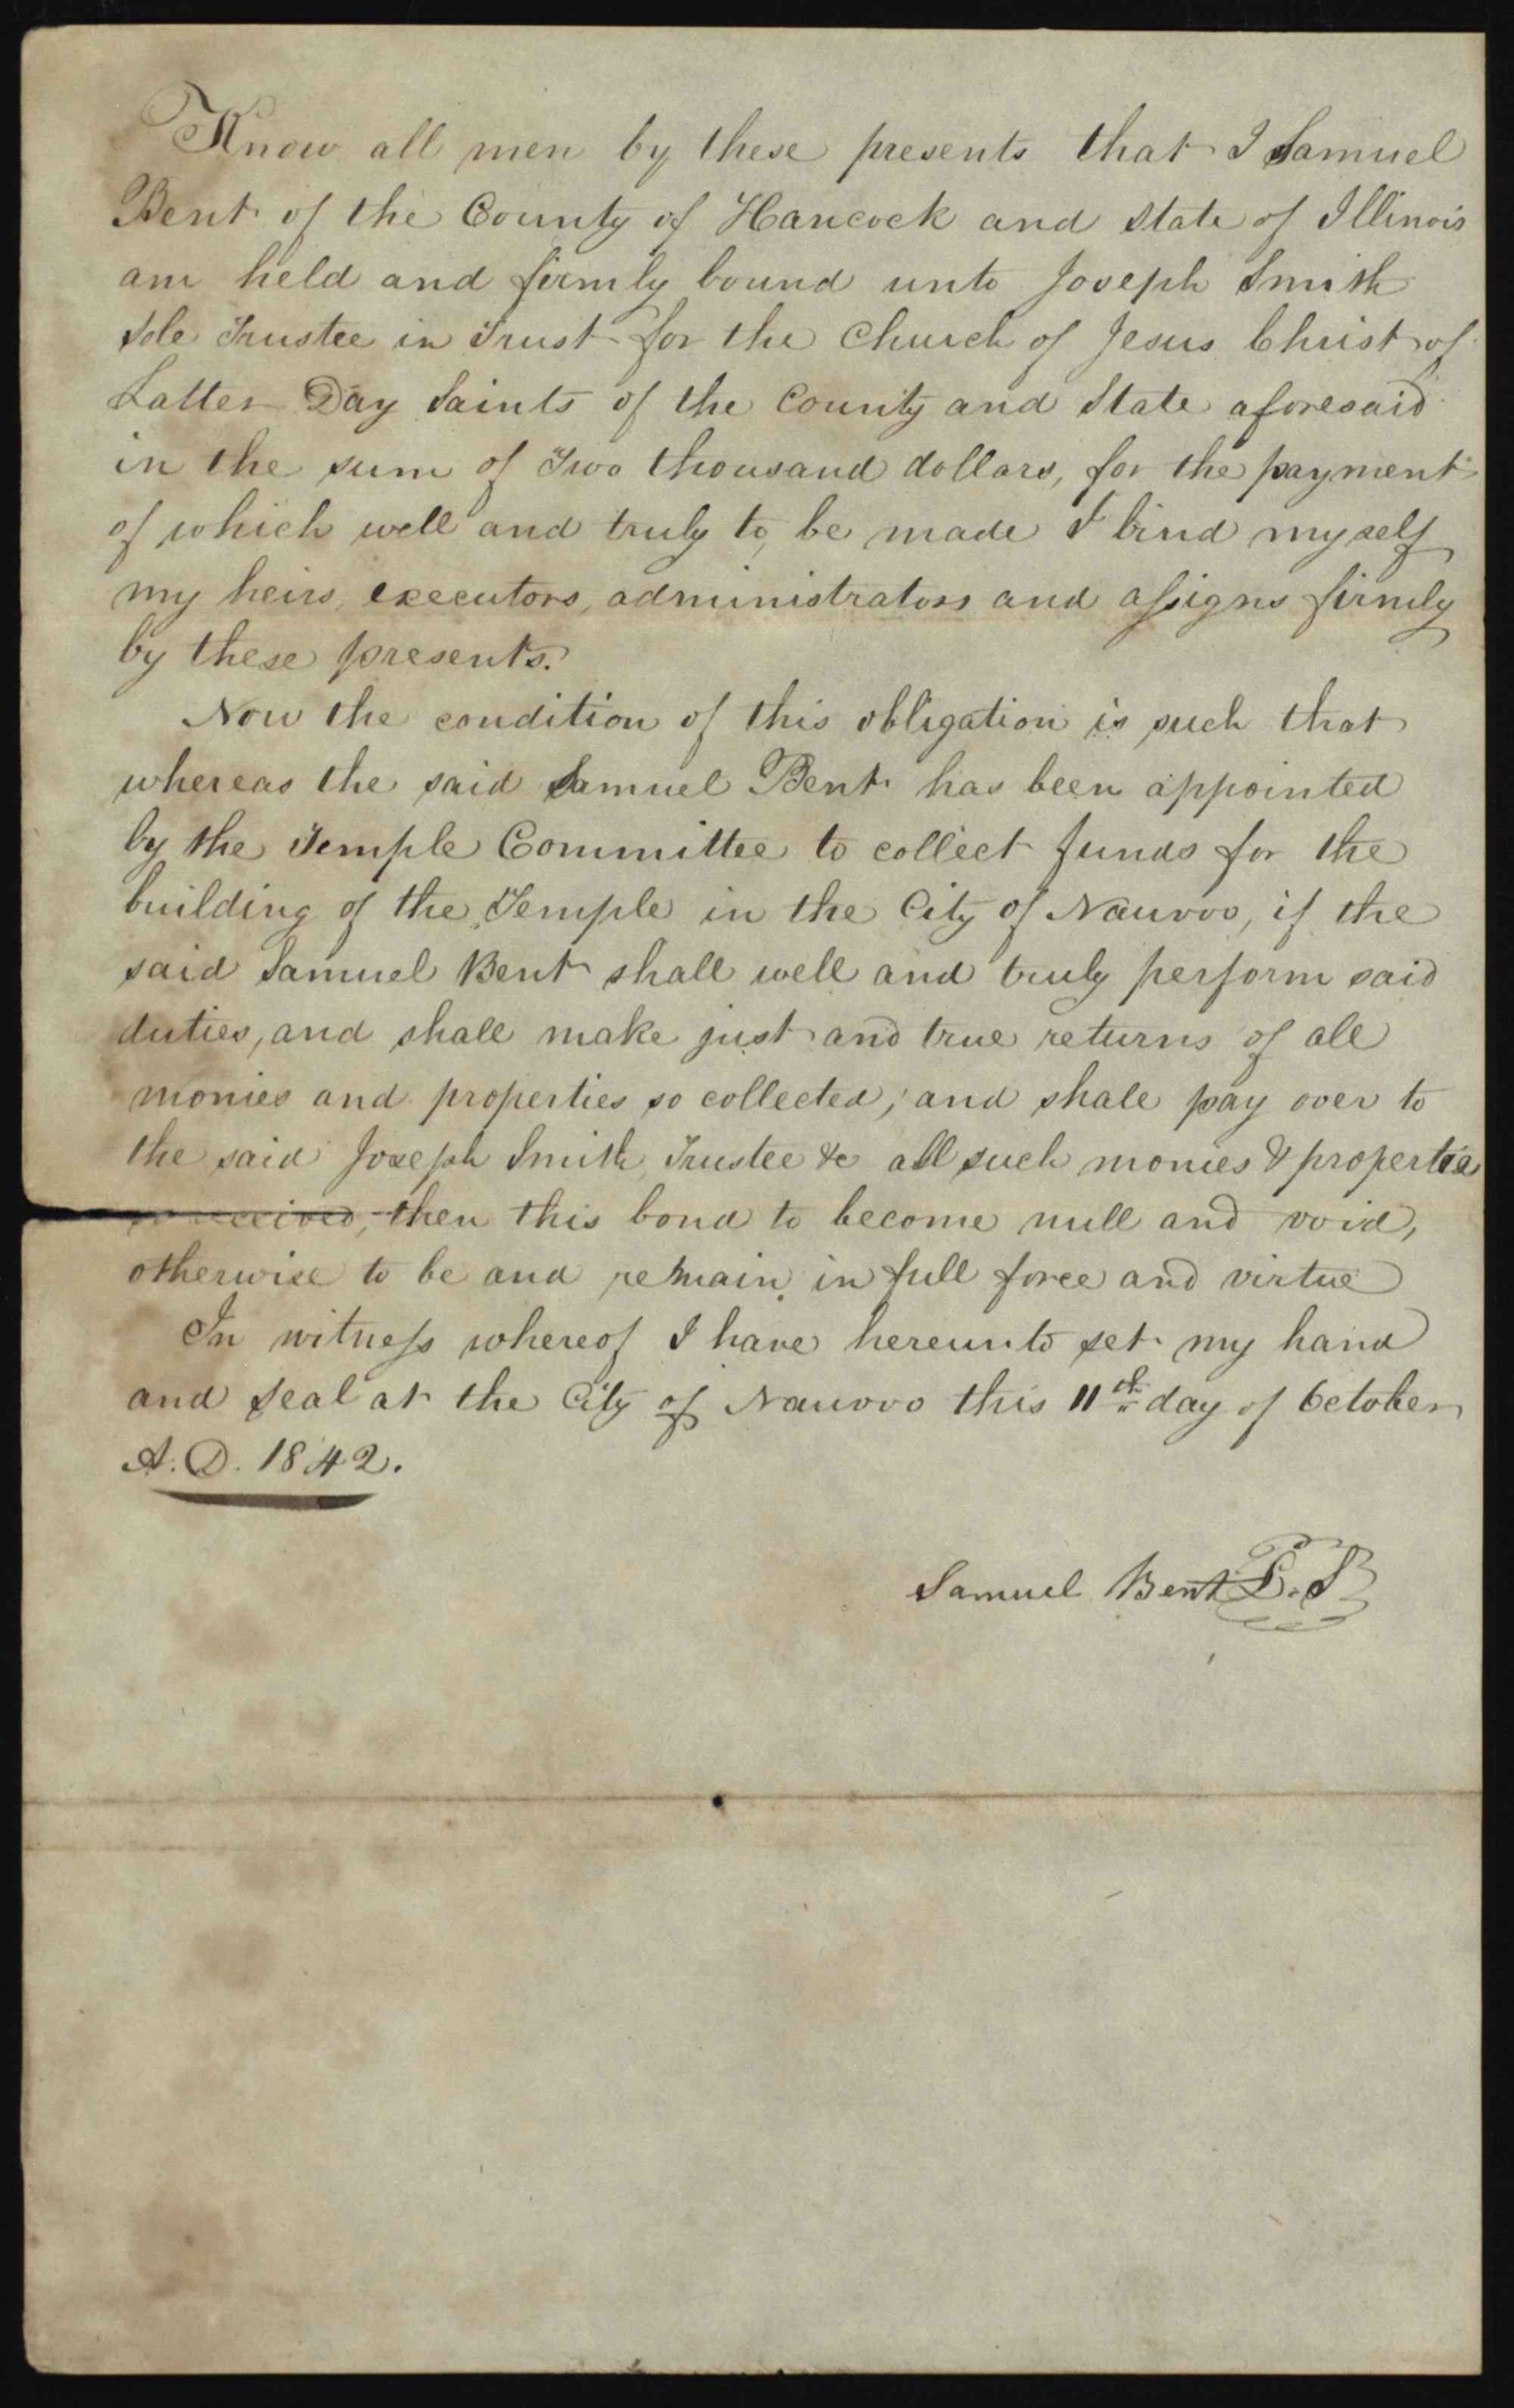 Know all men by these presents that I Samuel
Bent of the County of Hancock and State of Illinois
am held and firmly bound unto Joseph Smith
Sole Trustee in Trust for the Church of Jesus Christ of
Latter Day Saints of the County and State aforesaid
in the sum of Two thousand dollars, for the payment
of which well and truly to be made I bind myself
my heirs, executors, administrators and assigns firmly
by these presents.
Now the condition of this obligation is such that
whereas the said Samuel Bent has been appointed
by the Temple Committee to collect funds for the
building of the Temple in the City of Nauvoo, if the
said Samuel Bent shall well and truly perform said
duties, and shall make just and true returns of all
monies and properties so collected, and shall pay over to
the said Joseph Smith, Trustee &c all such monies & properties
so received, then this bond to become null and void,
otherwise to be and remain in full force and virtue
In witness whereof I have hereunto set my hand
and seal at the City of Nauvoo this 11th day of October
A.D. 1842.
Samuel Bent L.S